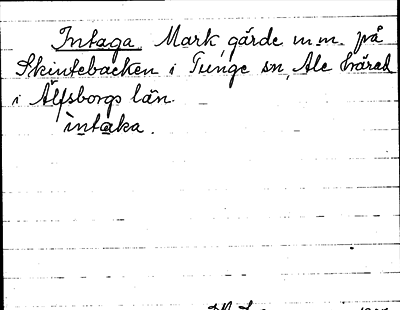 Intaga Mark, gärde m.m. på
Skintebacken i Tunge sn, Ale härad
i Älfsborgs län.
intaka.